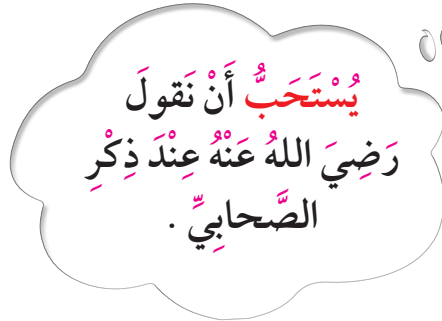 يُسْتَحَبُّ أَنْ نَقولَ
رَضِيَ اللهُ عَنْهُ عِنْدَ ذِكْرِ
الصَّحابِيِّ .